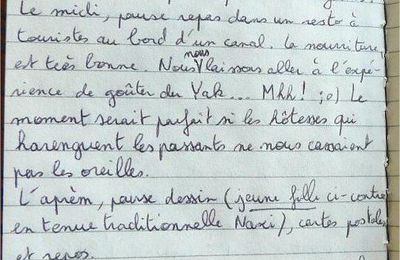 Le midi, pause repas dans un resto à
touristes au bord d'un canal. La nourriture
est très bonne. Nous nous laissons aller à l'expé-
rience de goûter du Yak... Mhh! ;o) Le
moment serait parfait si les hôtesses qui
harenguent les passants ne nous cassaient
pas les oreilles.
L'aprèm, pause dessin (jeune fille ci-contre
en tenue traditionnelle Naxi), cartes postales
et repos.